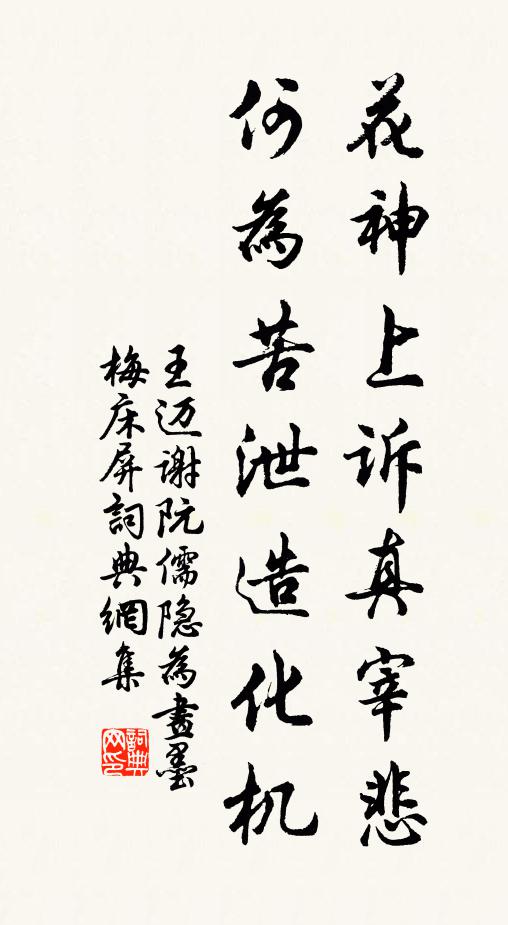 花神上诉真宰悲
何為苦泄造化机
王迈谢阮儒隐為畫墨
梅床屏詞典網集
詞典
网印